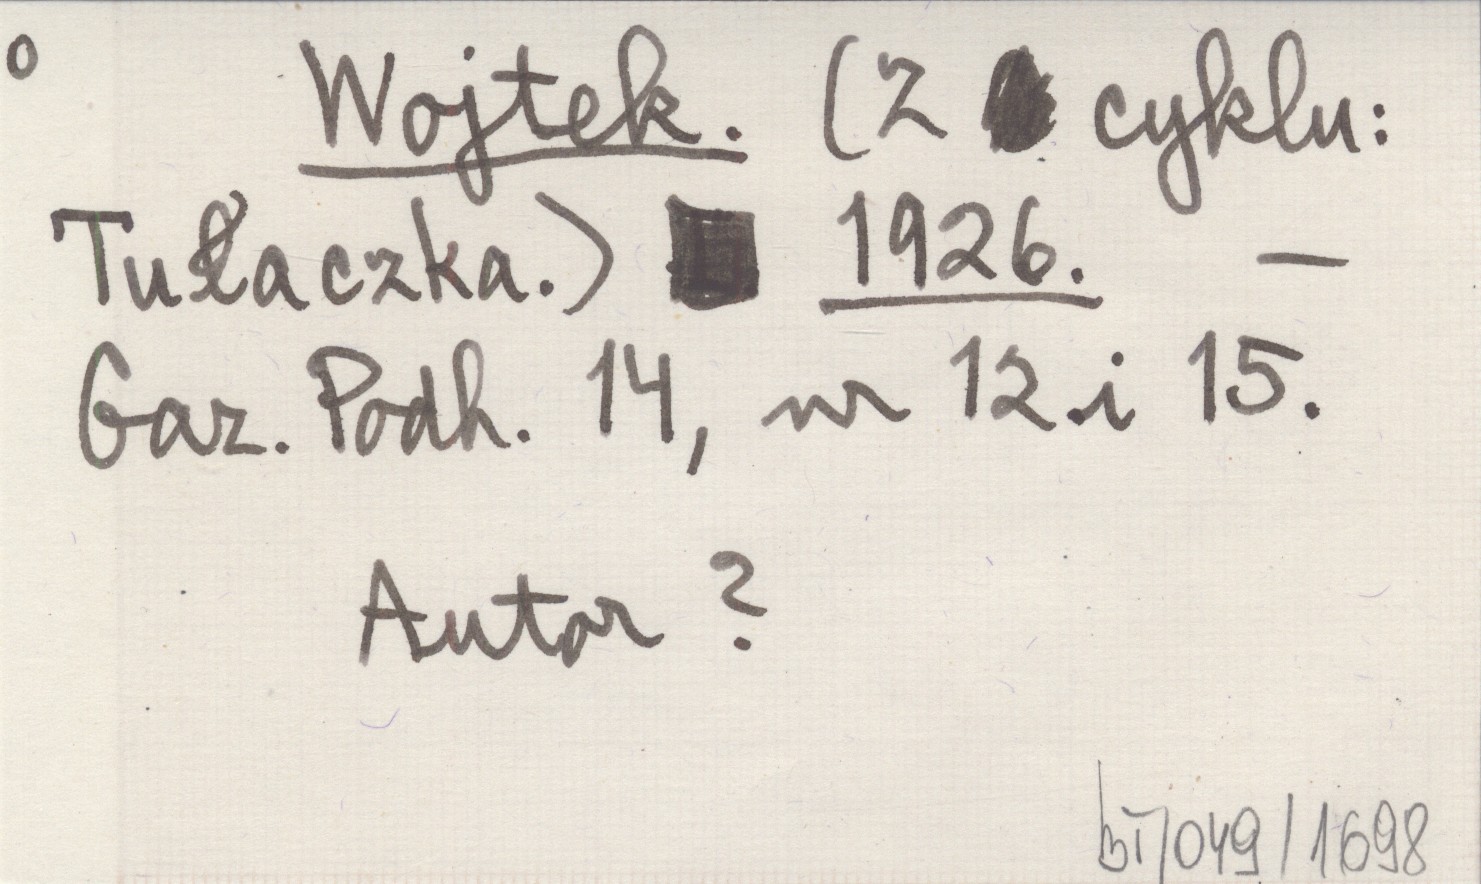 o Wojtek. (Z cyklu:
Tułaczka.) 1926. —
Gaz. Podh. 14, nr 12 i 15.
Autor ?
BT/049/1698